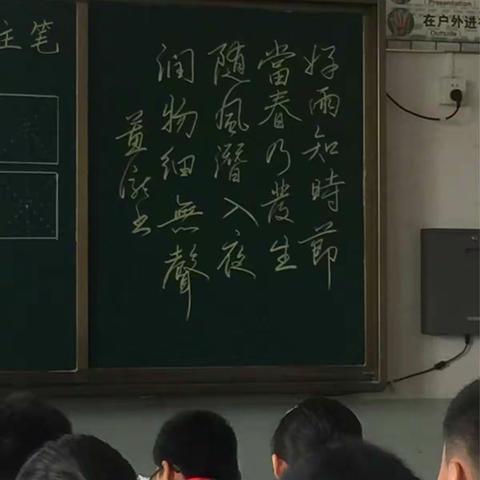 好雨知時節
當春乃發生
随風潛入夜
润物细無聲
主笔
Presentation
在户外进
Outside